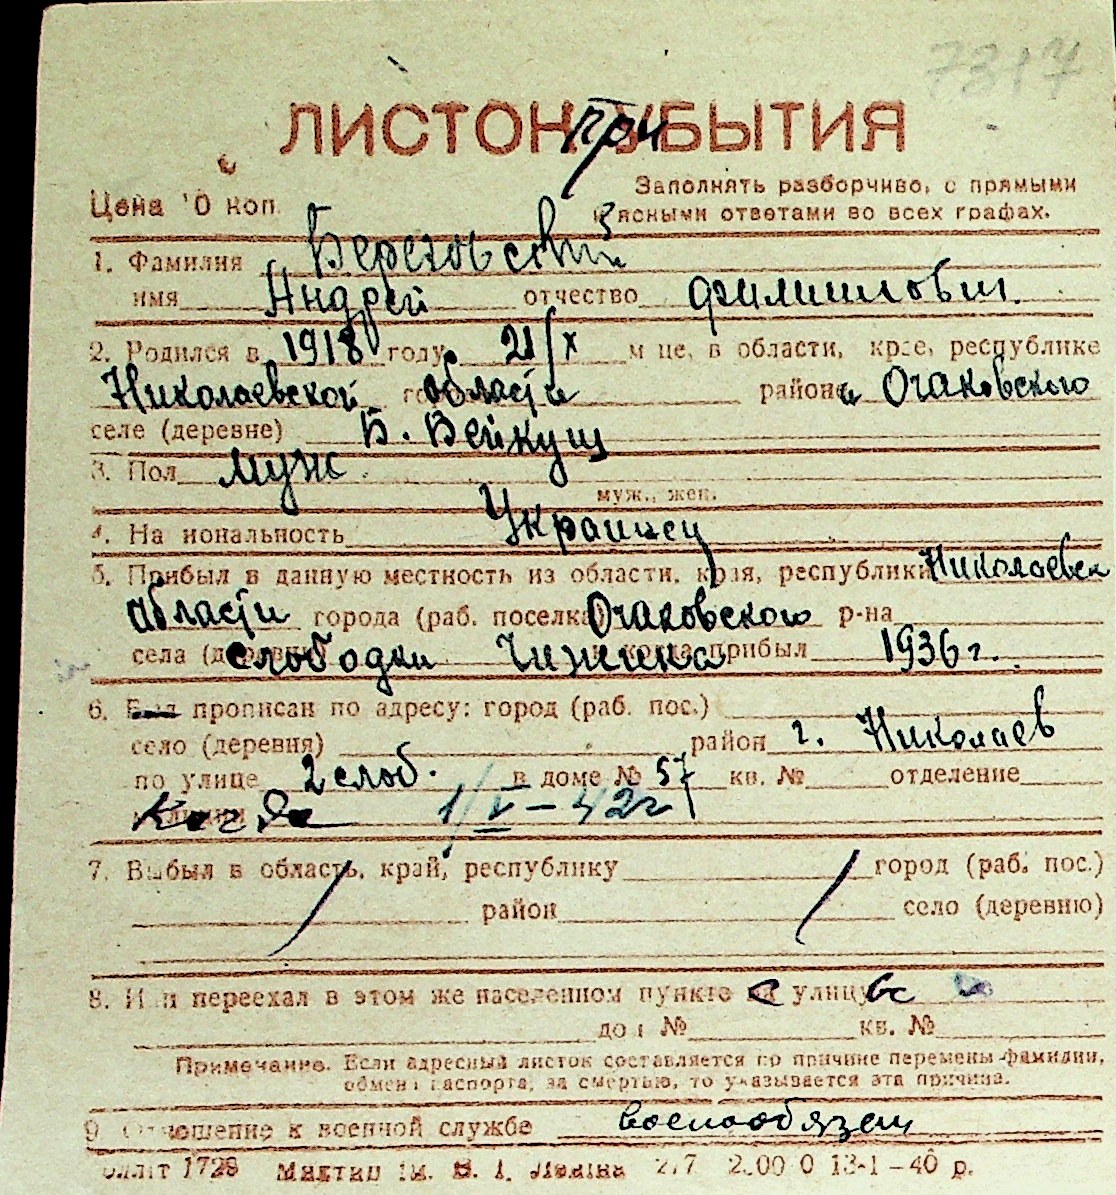 7317
ЛИСТОК при УБЫТИЯ
Цена 10 коп.
Заполнять разборчиво, с прямыми
и ясными ответами во всех графах.
1. Фамилия Березовский
имя Андрей отчество Филиппович
2. Родился в 1918 году 21/X м-це, в области, крае, республике
Николаевской области района Очаковского
селе (деревне) Б. Бейкуш
3. Пол муж
муж., жен.
4. Национальность Украинец
5. Прибыл в данную местность из области, края, республики Николаевск
области города (раб. поселка) Очаковского р-на
села (деревни) слободки Чижика когда прибыл 1936 г.
6. Был прописан по адресу: город (раб. пос.)
село (деревня) район г. Николаев
по улице 2 слоб. в доме № 57 кв. № отделение
милиции 1/V – 42 г
7. Выбыл в область, край, республику город (раб. пос.)
район село (деревню)
8. Или переехал в этом же населенном пункте на улицу
дом № кв. №
Примечание. Если адресный листок составляется по причине перемены фамилии,
обмена паспорта, за смертью, то указывается эта причина.
9. Отношение к военной службе военообязан
1728 им. В. И. Ленина 13-1-40 р.